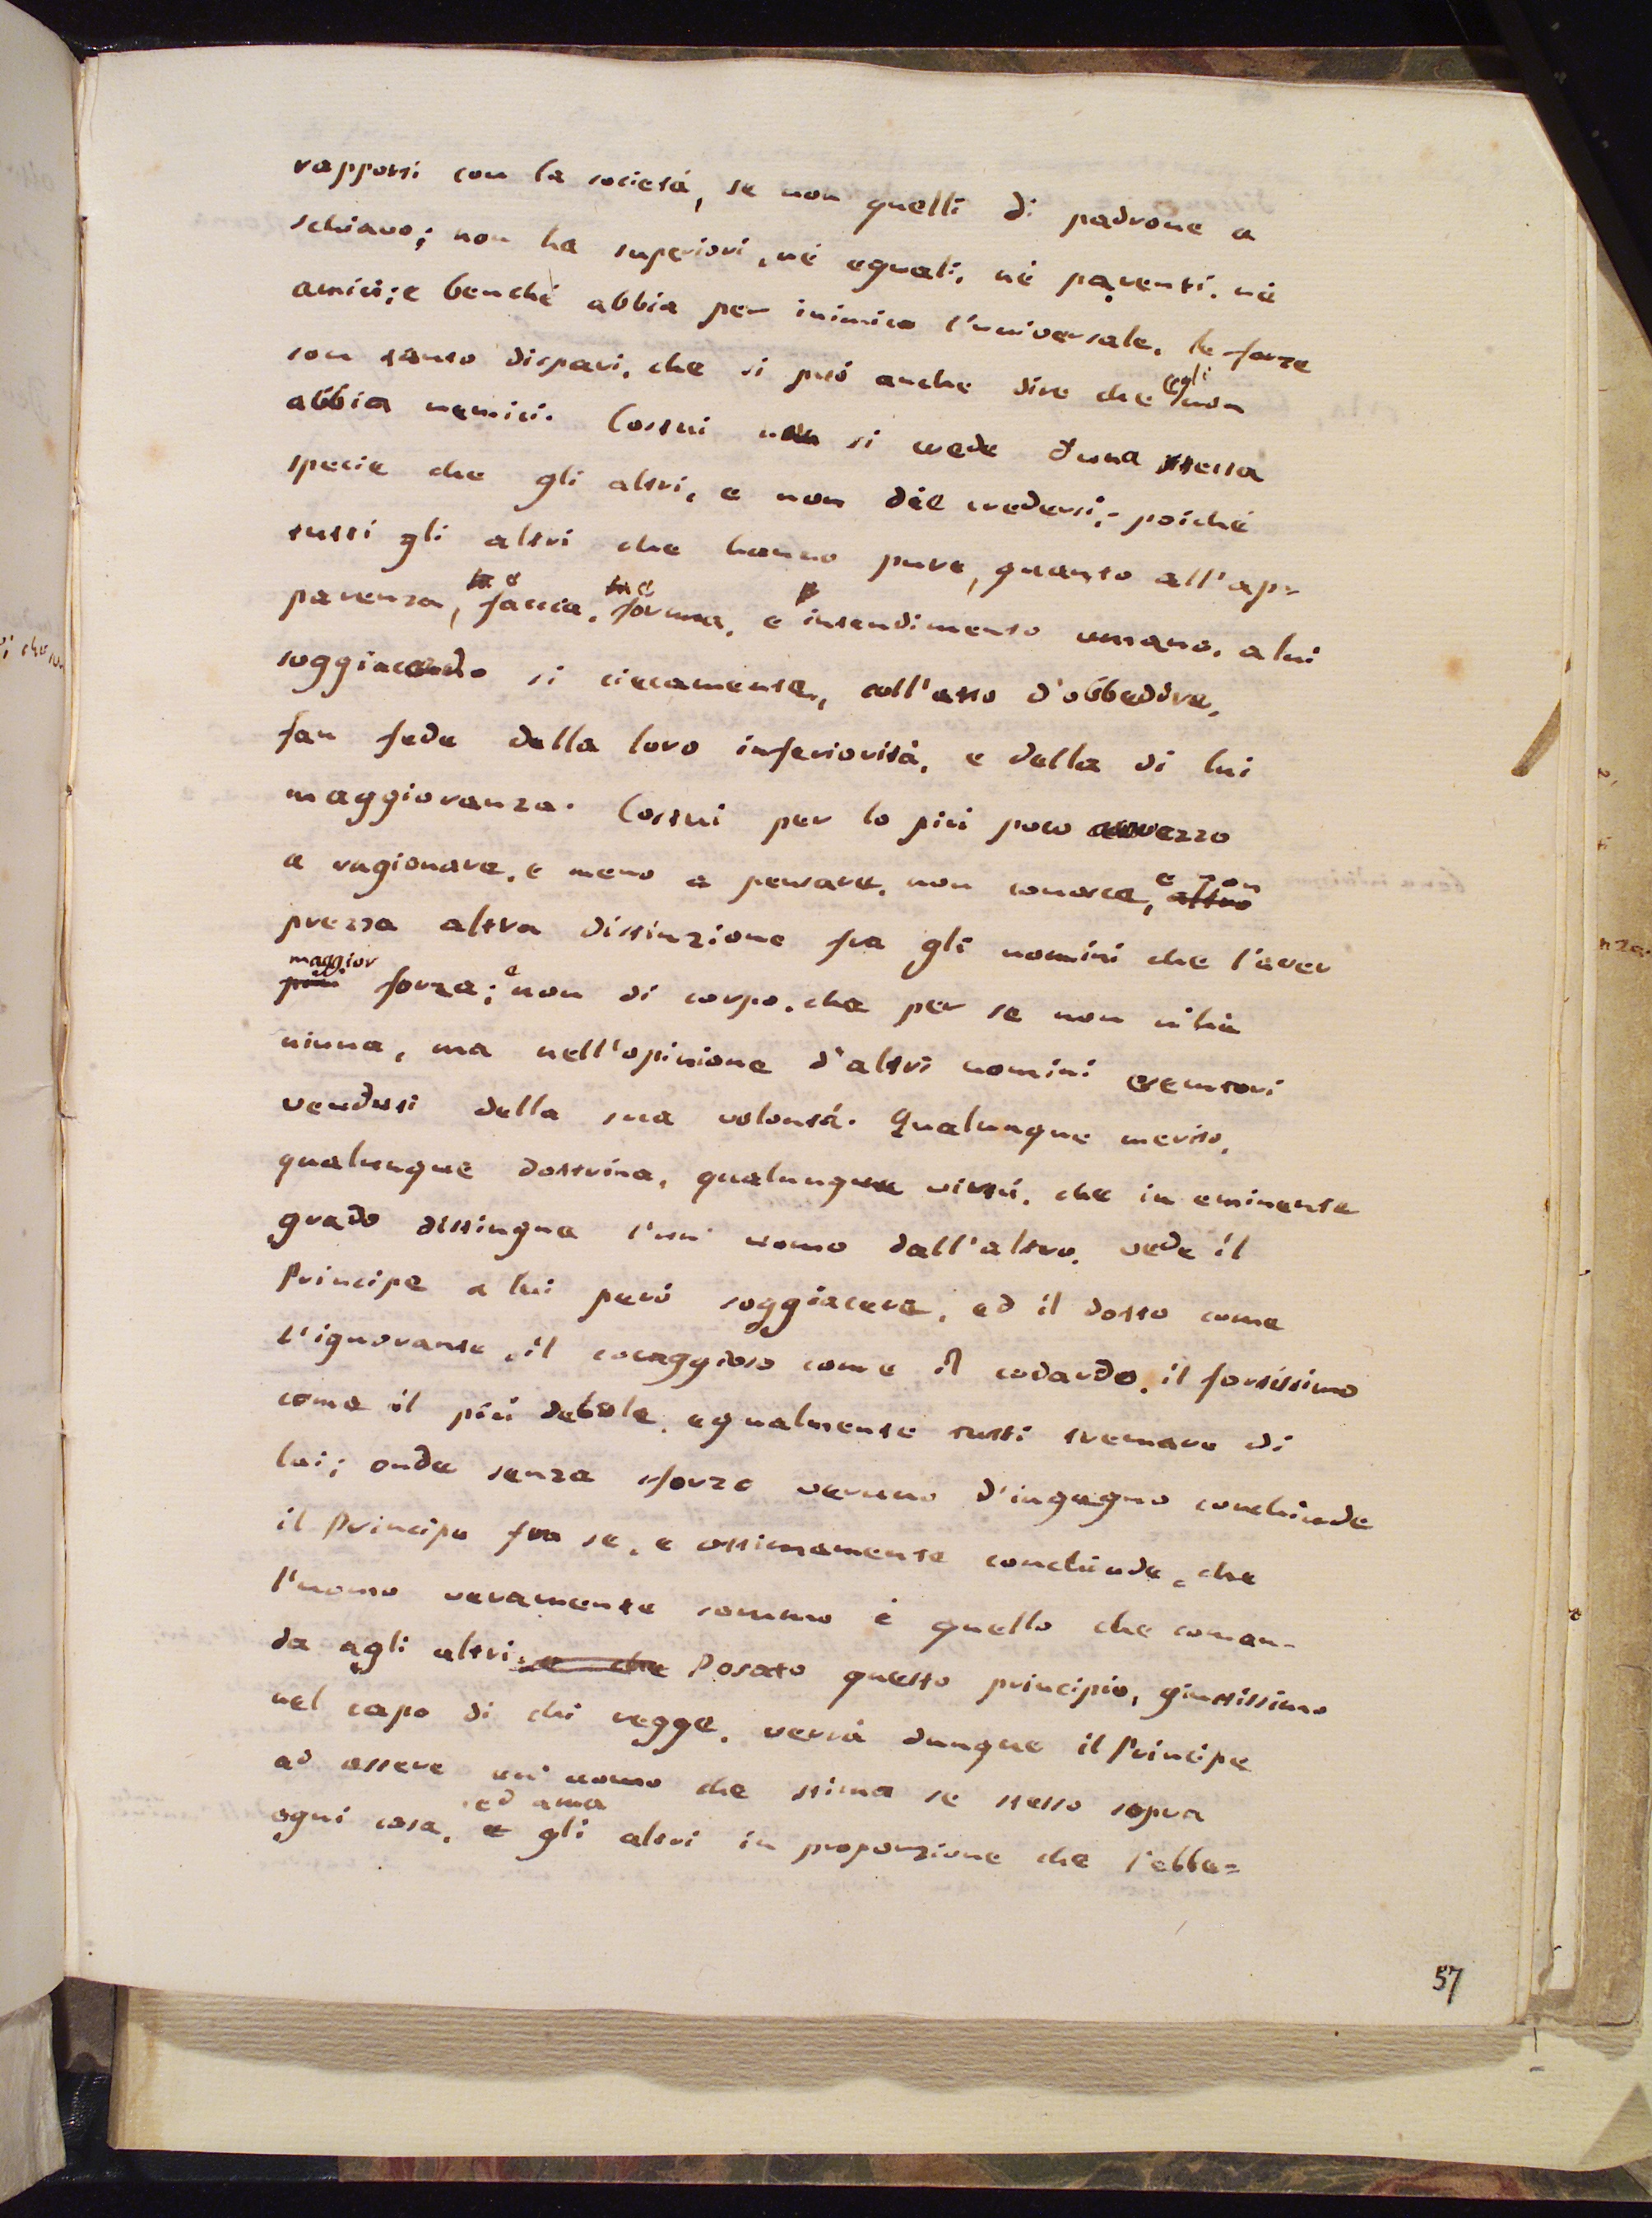 rapporti con la società, se non quelli di padrone a
schiavo; non ha superiori, nè eguali, nè parenti, nè
amici; e benchè abbia per inimico l'universale, le forze
son tanto dispari, che si può anche dire che egli non
abbia nemici. Costui non si crede d'una stessa
specie che gli altri, e non dee credersi; poichè
tutti gli altri che hanno pure, quanto all'ap=
parenza, e faccia, e forma, e intendimento umano, a lui
soggiacendo si ciecamente, coll'atto d'obbedire,
fan fede della loro inferiorità, e della di lui
maggioranza. Costui per lo più poco avvezzo
a ragionare, e meno a pensare, non conosce, e non altro
prezza altra distinzione fra gli uomini che l'aver
maggior più forza; e non di corpo, che per se non n'ha
niuna, ma nell'opinione d'altri uomini esecutori
venduti della sua volontà. Qualunque merito,
qualunque dottrina, qualunque virtù, che in eminente
grado distingua l'un' uomo dall'altro, vede il
Principe a lui però soggiacere, ed il dotto come
l'ignorante, il coraggioso come il codardo, il fortissimo
come il più debole, egualmente tutti tremare di
lui; onde senza sforzo veruno d'ingegno conchiude
il Principe fra se, e ottimamente conchiude, che
l'uomo veramente sommo è quello che coman=
da agli altri. e che Posato questo principio, giustissimo
nel capo di chi regge, verrà dunque il Principe
ad essere un' uomo che stima se stesso sopra
ogni cosa, ed ama e gli altri in proporzione che l'ebbe=
57